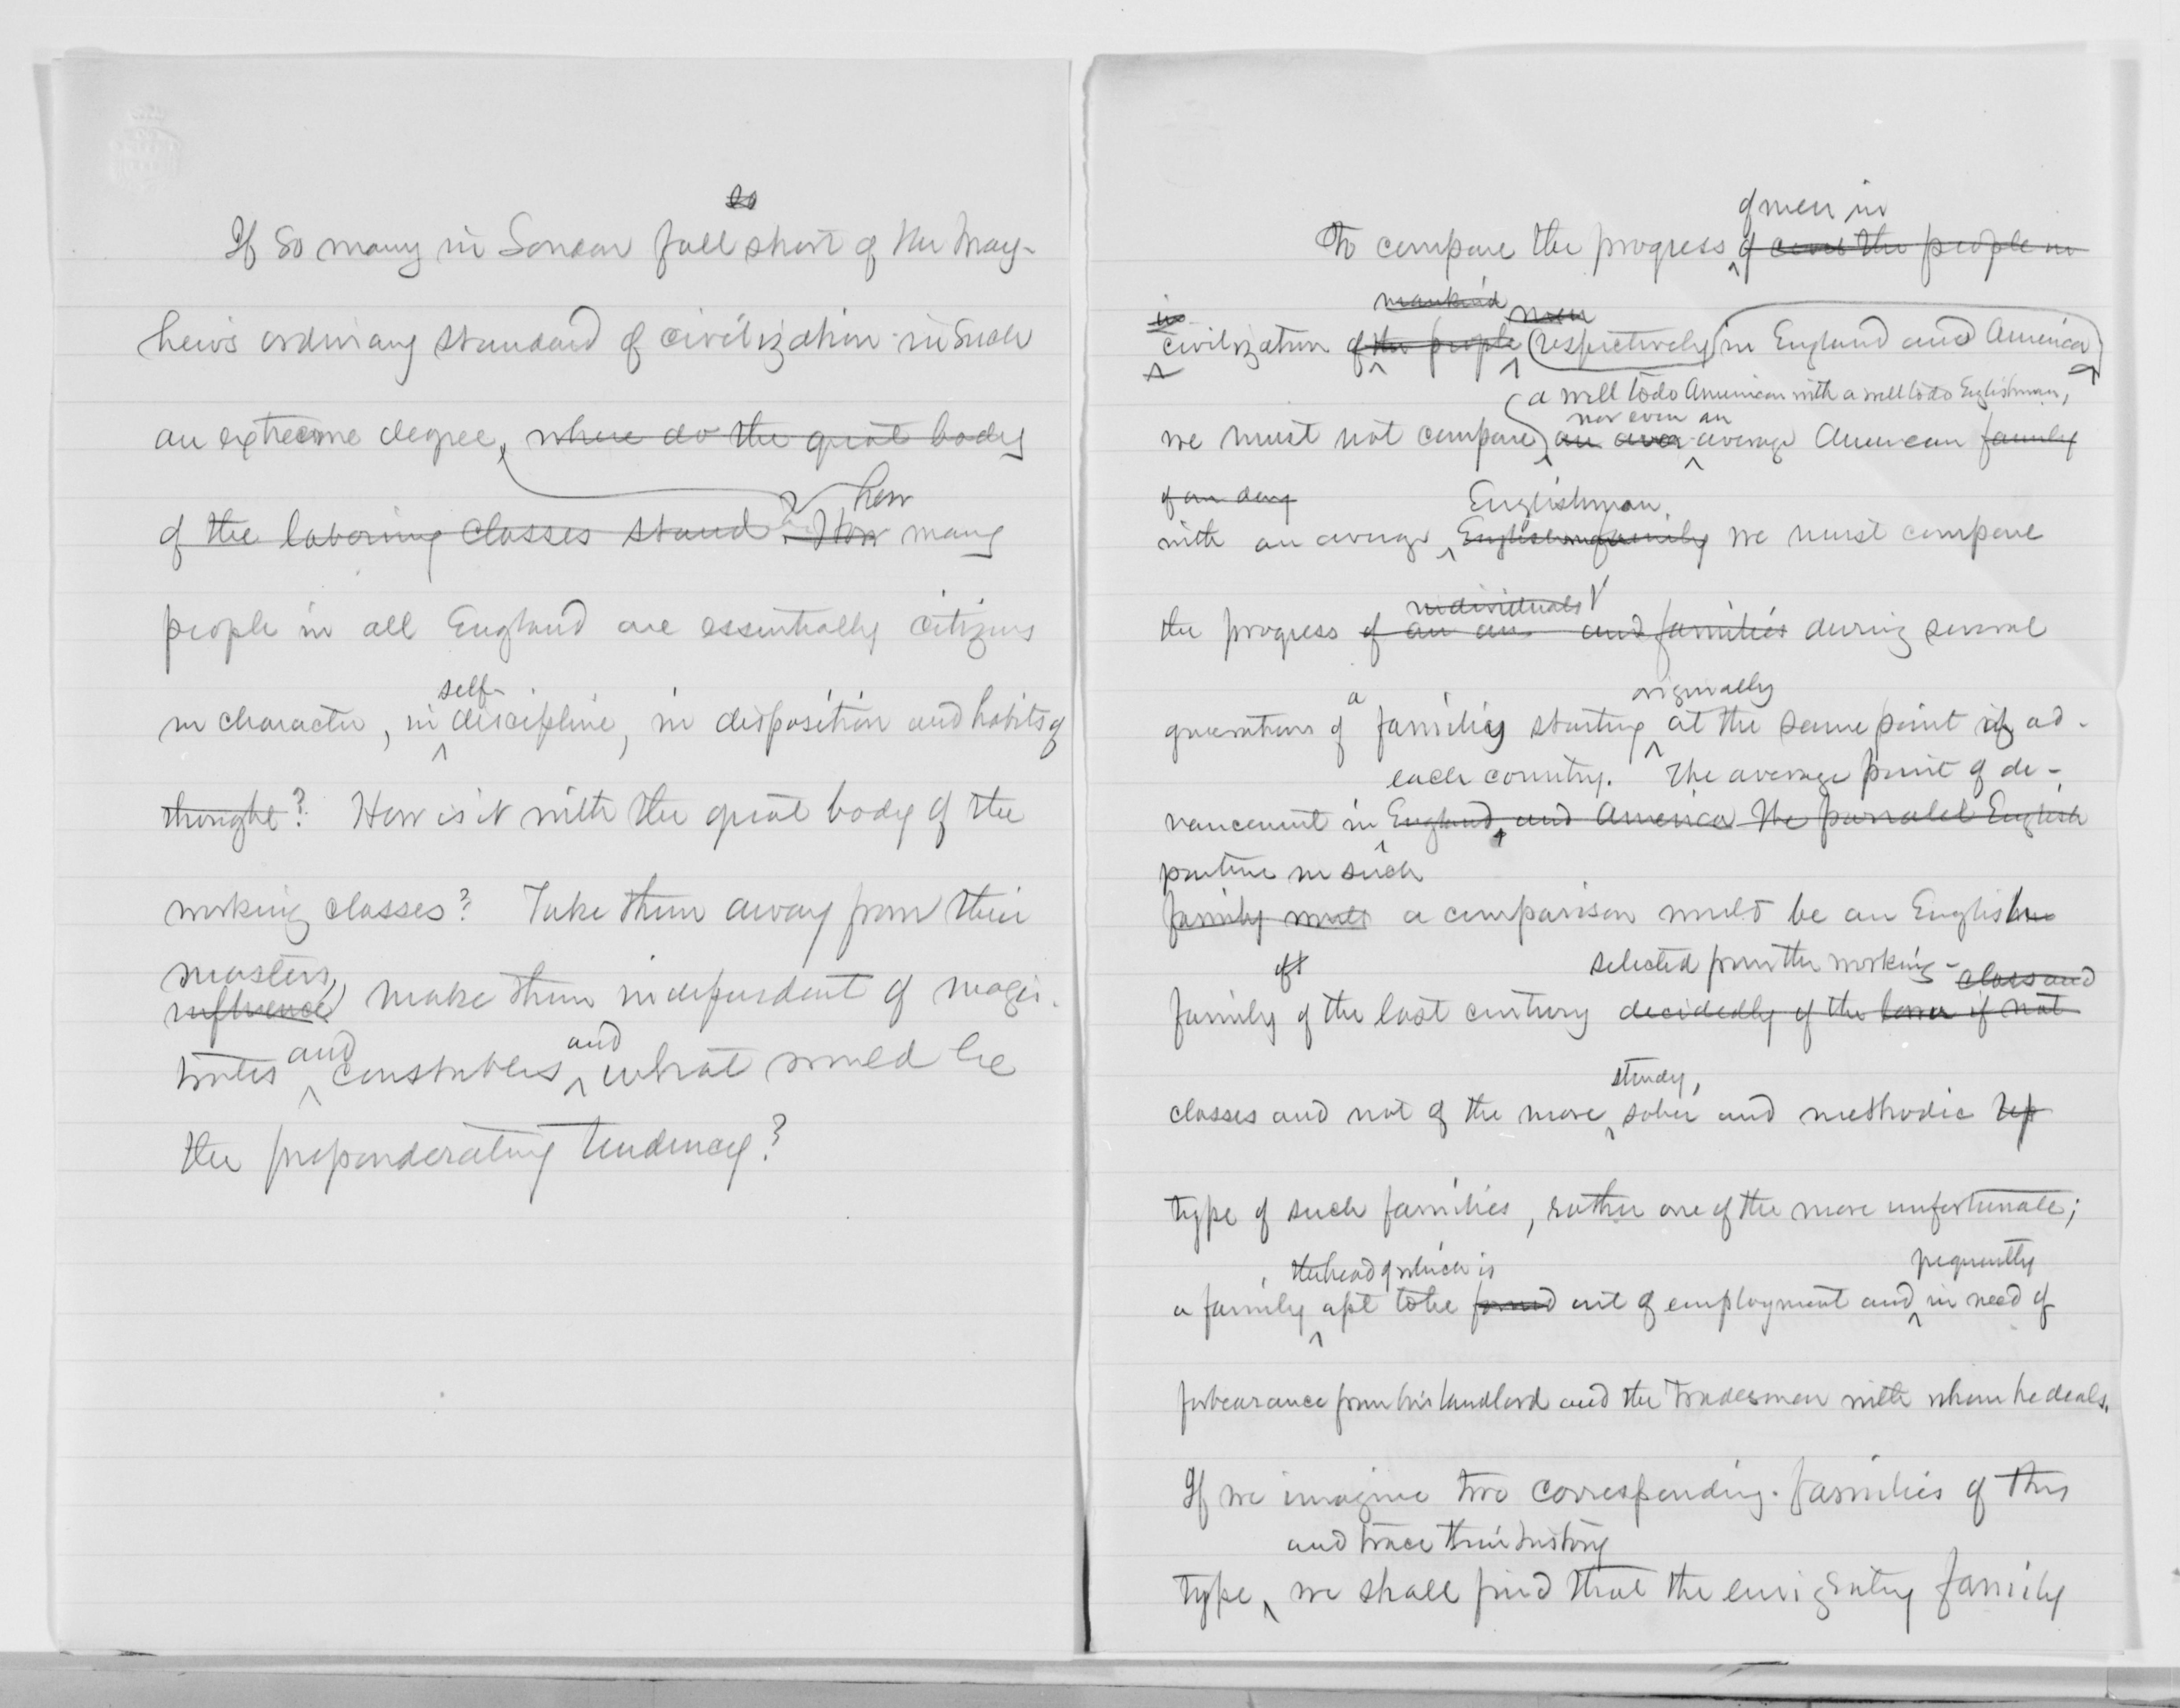 so
If so many in London fall short of Mr May-
hew's ordinary standard of civilization in such
an extreme degree, where do the great body
of the laboring classes stand? How how many
people in all England are essentially citizens
in character, in self-discipline, in disposition and habits of
thought? How is it with the great body of the
working classes? Take them away from their
masters,
influence, make them independent of magis-
trates and constables and what would be
the preponderating tendency?
of men in
To compare the progress of the people in
mankind men
in
civilization of the people (respectively) in England and America
a well to do American with a well to do Englishman,
nor even an
we must not compare an aver average American family
of our day Englishman,
with an average English family we must compare
individuals
the progress of an and families during several
a originally
generations of family starting at the same point of ad-
each country. The average point of de-
vancement in England, and America The parralel English
parture in such
family must a comparison must be an English
of selected from the working- class and
family of the last century decidedly of the lower if not
steady,
classes and not of the more sober and methodic
type of such families, rather one of the more unfortunate;
the head of which is frequently
a family apt to be found out of employment and in need of
forbearance from his landlord and the tradesmen with whom he deals.
If we imagine two corresponding families of this
and trace their history
type, we shall find that the emigrating family